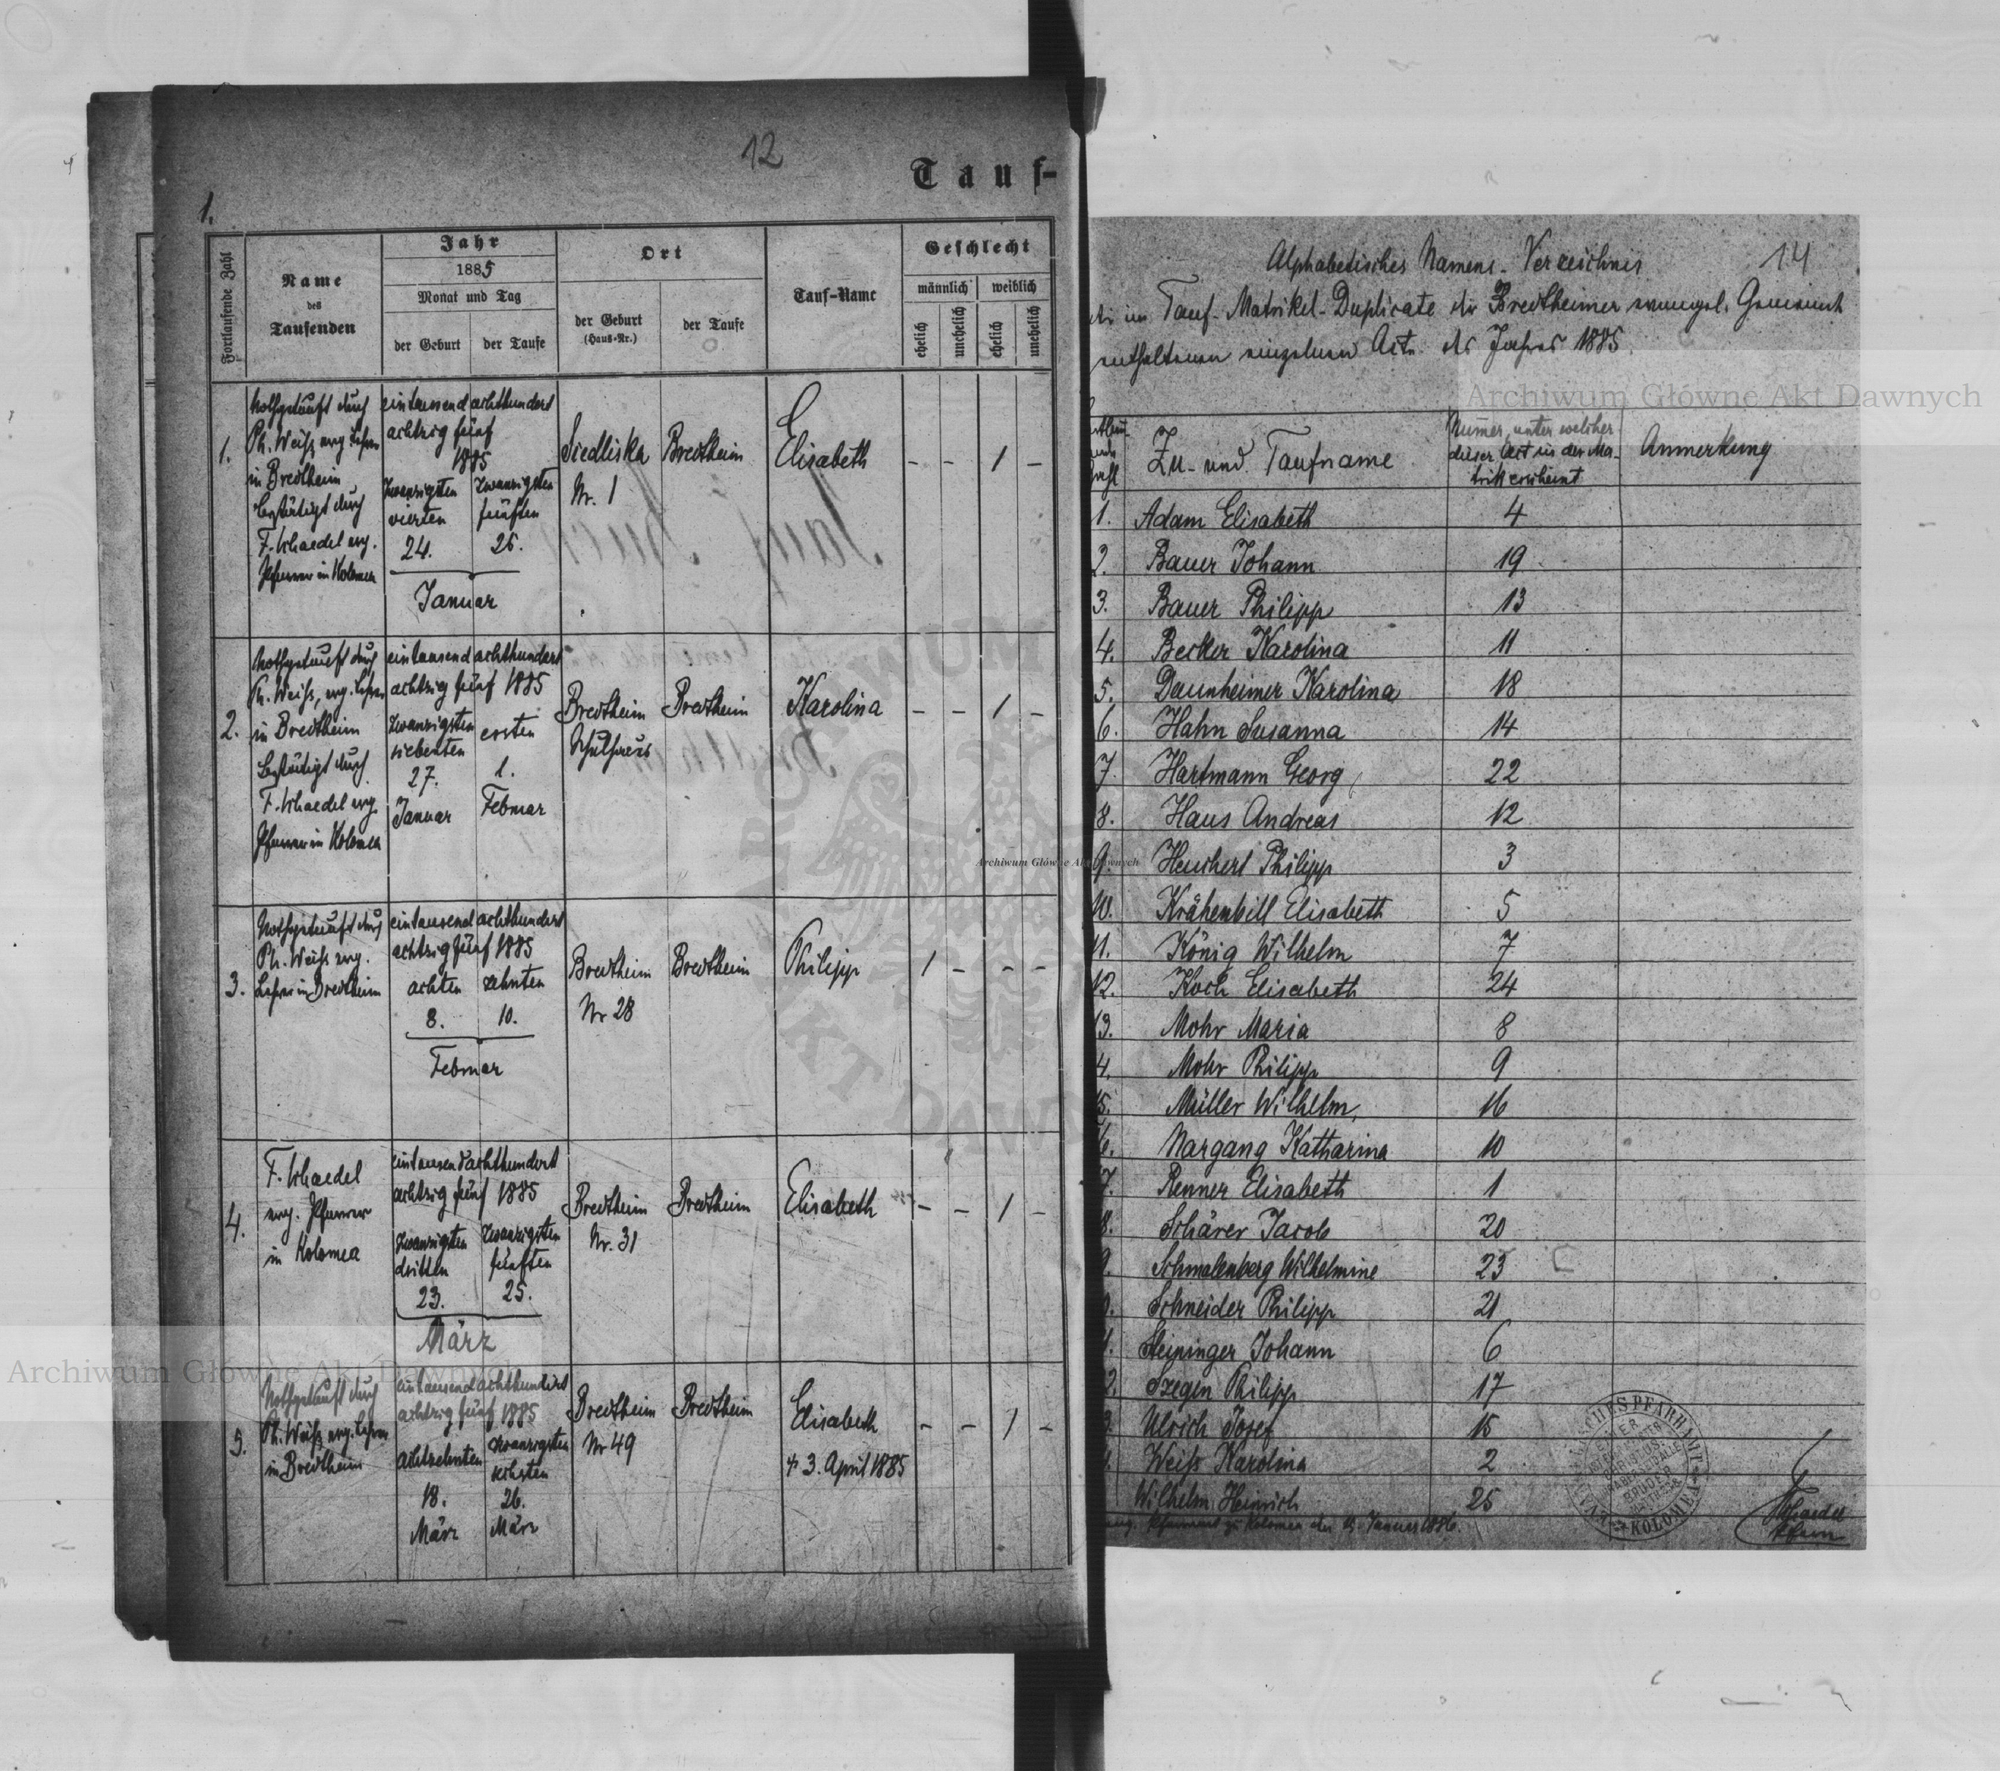 12
Tauf-
1.
Fortlaufende Zahl
Name
des
Taufenden
Jahr
1885
Monat und Tag
der Geburt
der Taufe
Ort
der Geburt
(Haus-Nr.)
der Taufe
Tauf-Name
Geschlecht
männlich
weiblich
ehelich
unehelich
ehelich
unehelich
1.
Nothgetauft durch
Ph. Weiß evg. Lehrer
in Bredtheim
bestätigt durch
F. Schaedel evg.
Pfarrer in Kolomea
eintausend achthundert
achtzig fünf
1885
zwanzigsten
vierten
24.
zwanzigsten
fünften
25.
Januar
Siedliska
Nr. 1
Bredtheim
Elisabeth
- - 1 -
2.
Nothgetauft durch
Ph. Weiß, evg. Lehrer
in Bredtheim
bestätigt durch
F. Schaedel evg.
Pfarrer in Kolomea
eintausend achthundert
achtzig fünf 1885
zwanzigsten
siebenten
27.
Januar
ersten
1.
Februar
Bredtheim
Schulhaus
Bredtheim
Karolina
- - 1 -
3.
Nothgetauft durch
Ph. Weiß evg.
Lehrer in Bredtheim
eintausend achthundert
achtzig fünf 1885
achten
8.
zehnten
10.
Februar
Bredtheim
Nr 28
Bredtheim
Philipp
1 - - -
4.
F. Schaedel
evg. Pfarrer
in Kolomea
eintausend achthundert
achtzig fünf 1885
zwanzigsten
dritten
23.
zwanzigsten
fünften
25.
März
Bredtheim
Nr. 31
Bredtheim
Elisabeth
- - 1 -
5.
Nothgetauft durch
Ph. Weiß evg. Lehrer
in Bredtheim
eintausend achthundert
achtzig fünf 1885
achtzehnten
18.
März
zwanzigsten
sechsten
26.
März
Bredtheim
Nr 49
Bredtheim
Elisabeth
† 3. April 1885
- - 1 -
14
Alphabetisches Namens-Verzeichnis
der im Tauf-Matrikel-Duplicate der Bredtheimer evangel. Gemeinde
enthaltenen einzelnen Acte des Jahres 1885.
Zu- und Taufname
Numer, unter welcher
dieser Act in der Ma-
trik erscheint
Anmerkung
1. Adam Elisabeth 4
2. Bauer Johann 19
3. Bauer Philipp 13
4. Becker Karolina 11
5. Daunheimer Karolina 18
6. Hahn Susanna 14
7. Hartmann Georg 22
8. Haus Andreas 12
9. Heuchert Philipp 3
10. Krähenbill Elisabeth 5
11. König Wilhelm 7
12. Koch Elisabeth 24
13. Mohr Maria 8
4. Mohr Philipp 9
5. Müller Wilhelm 16
6. Nargang Katharina 10
7. Renner Elisabeth 1
8. Schärer Jacob 20
9. Schmalenberg Wilhelmine 23
0. Schneider Philipp 21
1. Steininger Johann 6
2. Szegin Philipp 17
3. Ulrich Josef 15
4. Weiß Karolina 2
Wilhelm Heinrich 25
evg. Pfarramt zu Kolomea den 15. Januar 1886.
Schaedel
Pfarrer
KOLOMEA
Archiwum Główne Akt Dawnych
Archiwum Główne Akt Dawnych
Archiwum Główne Akt Dawnych